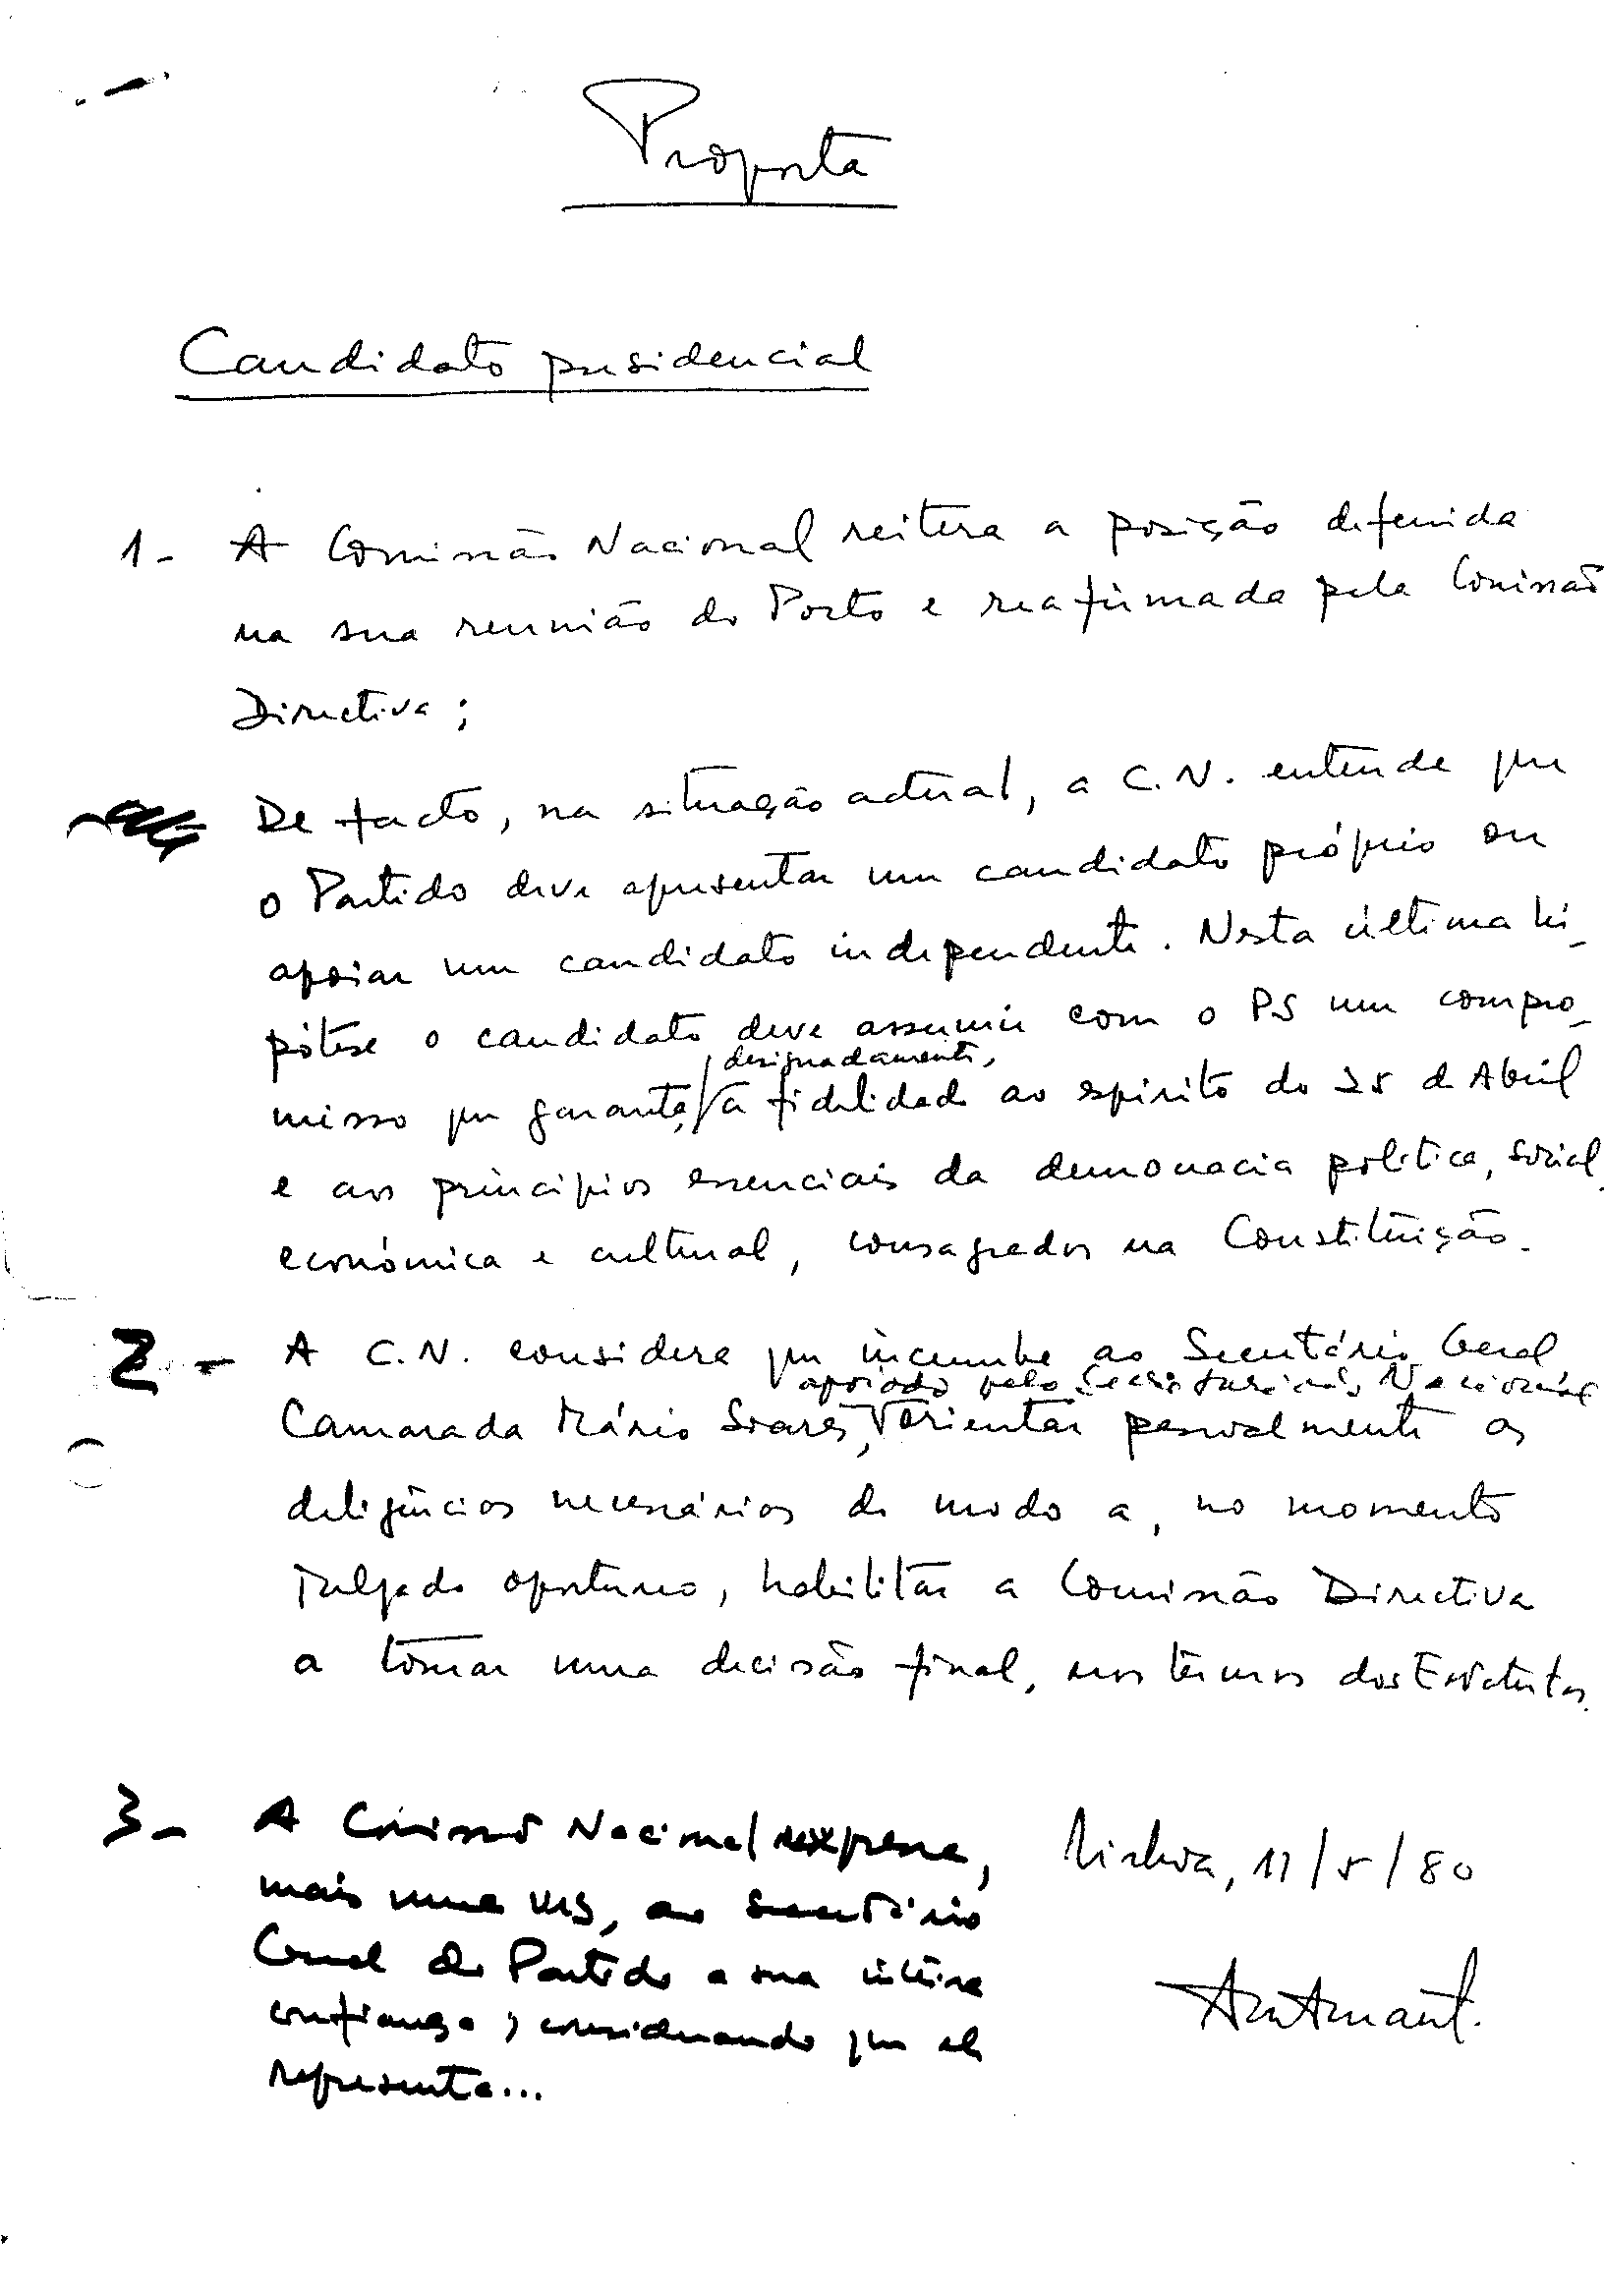 Proposta
Candidato presidencial
1- A Comissão Nacional reitera a posição defenida
na sua reunião do Porto e reafirmada pela Comissão
Directiva;
De facto, na situação actual, a C.N. entende que
o Partido deve apresentar um candidato próprio ou
apoiar um candidato independente. Nesta última hi-
pótese o candidato deve assumir com o PS um compro-
designadamente,
misso que garanta, a fidelidade ao espírito do 25 de Abril
e aos princípios essenciais da democracia política, social,
económica e cultural, consagrados na Constituição.
2- A C.N. considera que incumbe ao Secretário Geral,
apoiado pelo Secretariado Nacional
Camarada Mário Soares, orientar pessoalmente as
diligências necessárias de modo a, no momento
julgado oportuno, habilitar a Comissão Directiva
a tomar uma decisão final, nos termos dos Estatutos.
3- A Comissão Nacional expressa,
mais uma vez, ao Secretário
Geral do Partido a sua inteira
confiança, considerando que ele
representa...
Lisboa, 11/5/80